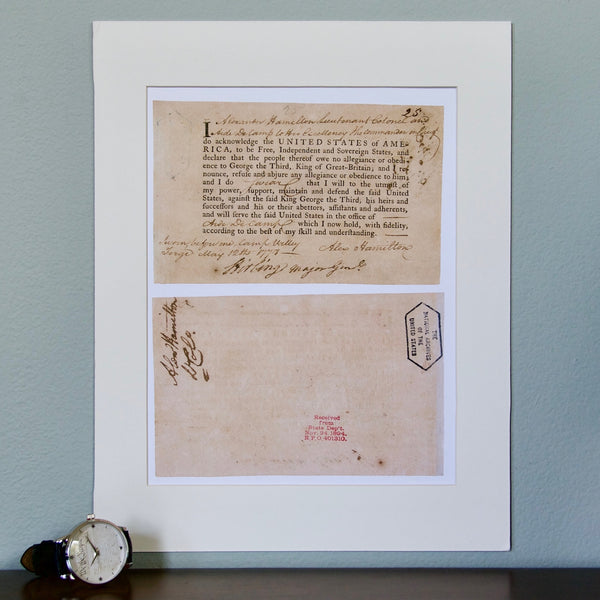 25
I Alexander Hamilton Lieutenant Colonel and
Aide De Camp to His Excellency the Commander in Chief
do acknowledge the UNITED STATES of AME-
RICA, to be Free, Independent and Sovereign States, and
declare that the people thereof owe no allegiance or obedi-
ence to George the Third, King of Great-Britain; and I re-
nounce, refuse and abjure any allegiance or obedience to him;
and I do swear that I will to the utmost of
my power, support, maintain and defend the said United
States, against the said King George the Third, his heirs and
successors and his or their abettors, assistants and adherents,
and will serve the said United States in the office of
Aide De Camp which I now hold, with fidelity,
according to the best of my skill and understanding.
Sworn before me, Camp Valley
Forge May 12th 1778
Alex Hamilton
Stirling Major Genl.
Alex Hamilton
THE
NATIONAL ARCHIVES
OF THE
UNITED STATES
Received
from
State Dep't.
Nov. 24, 1894.
R.P.O. 401310.